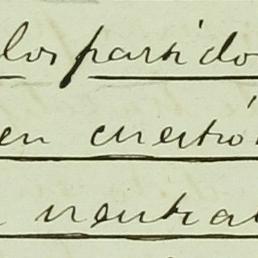 los partido
en cuestió
neutra